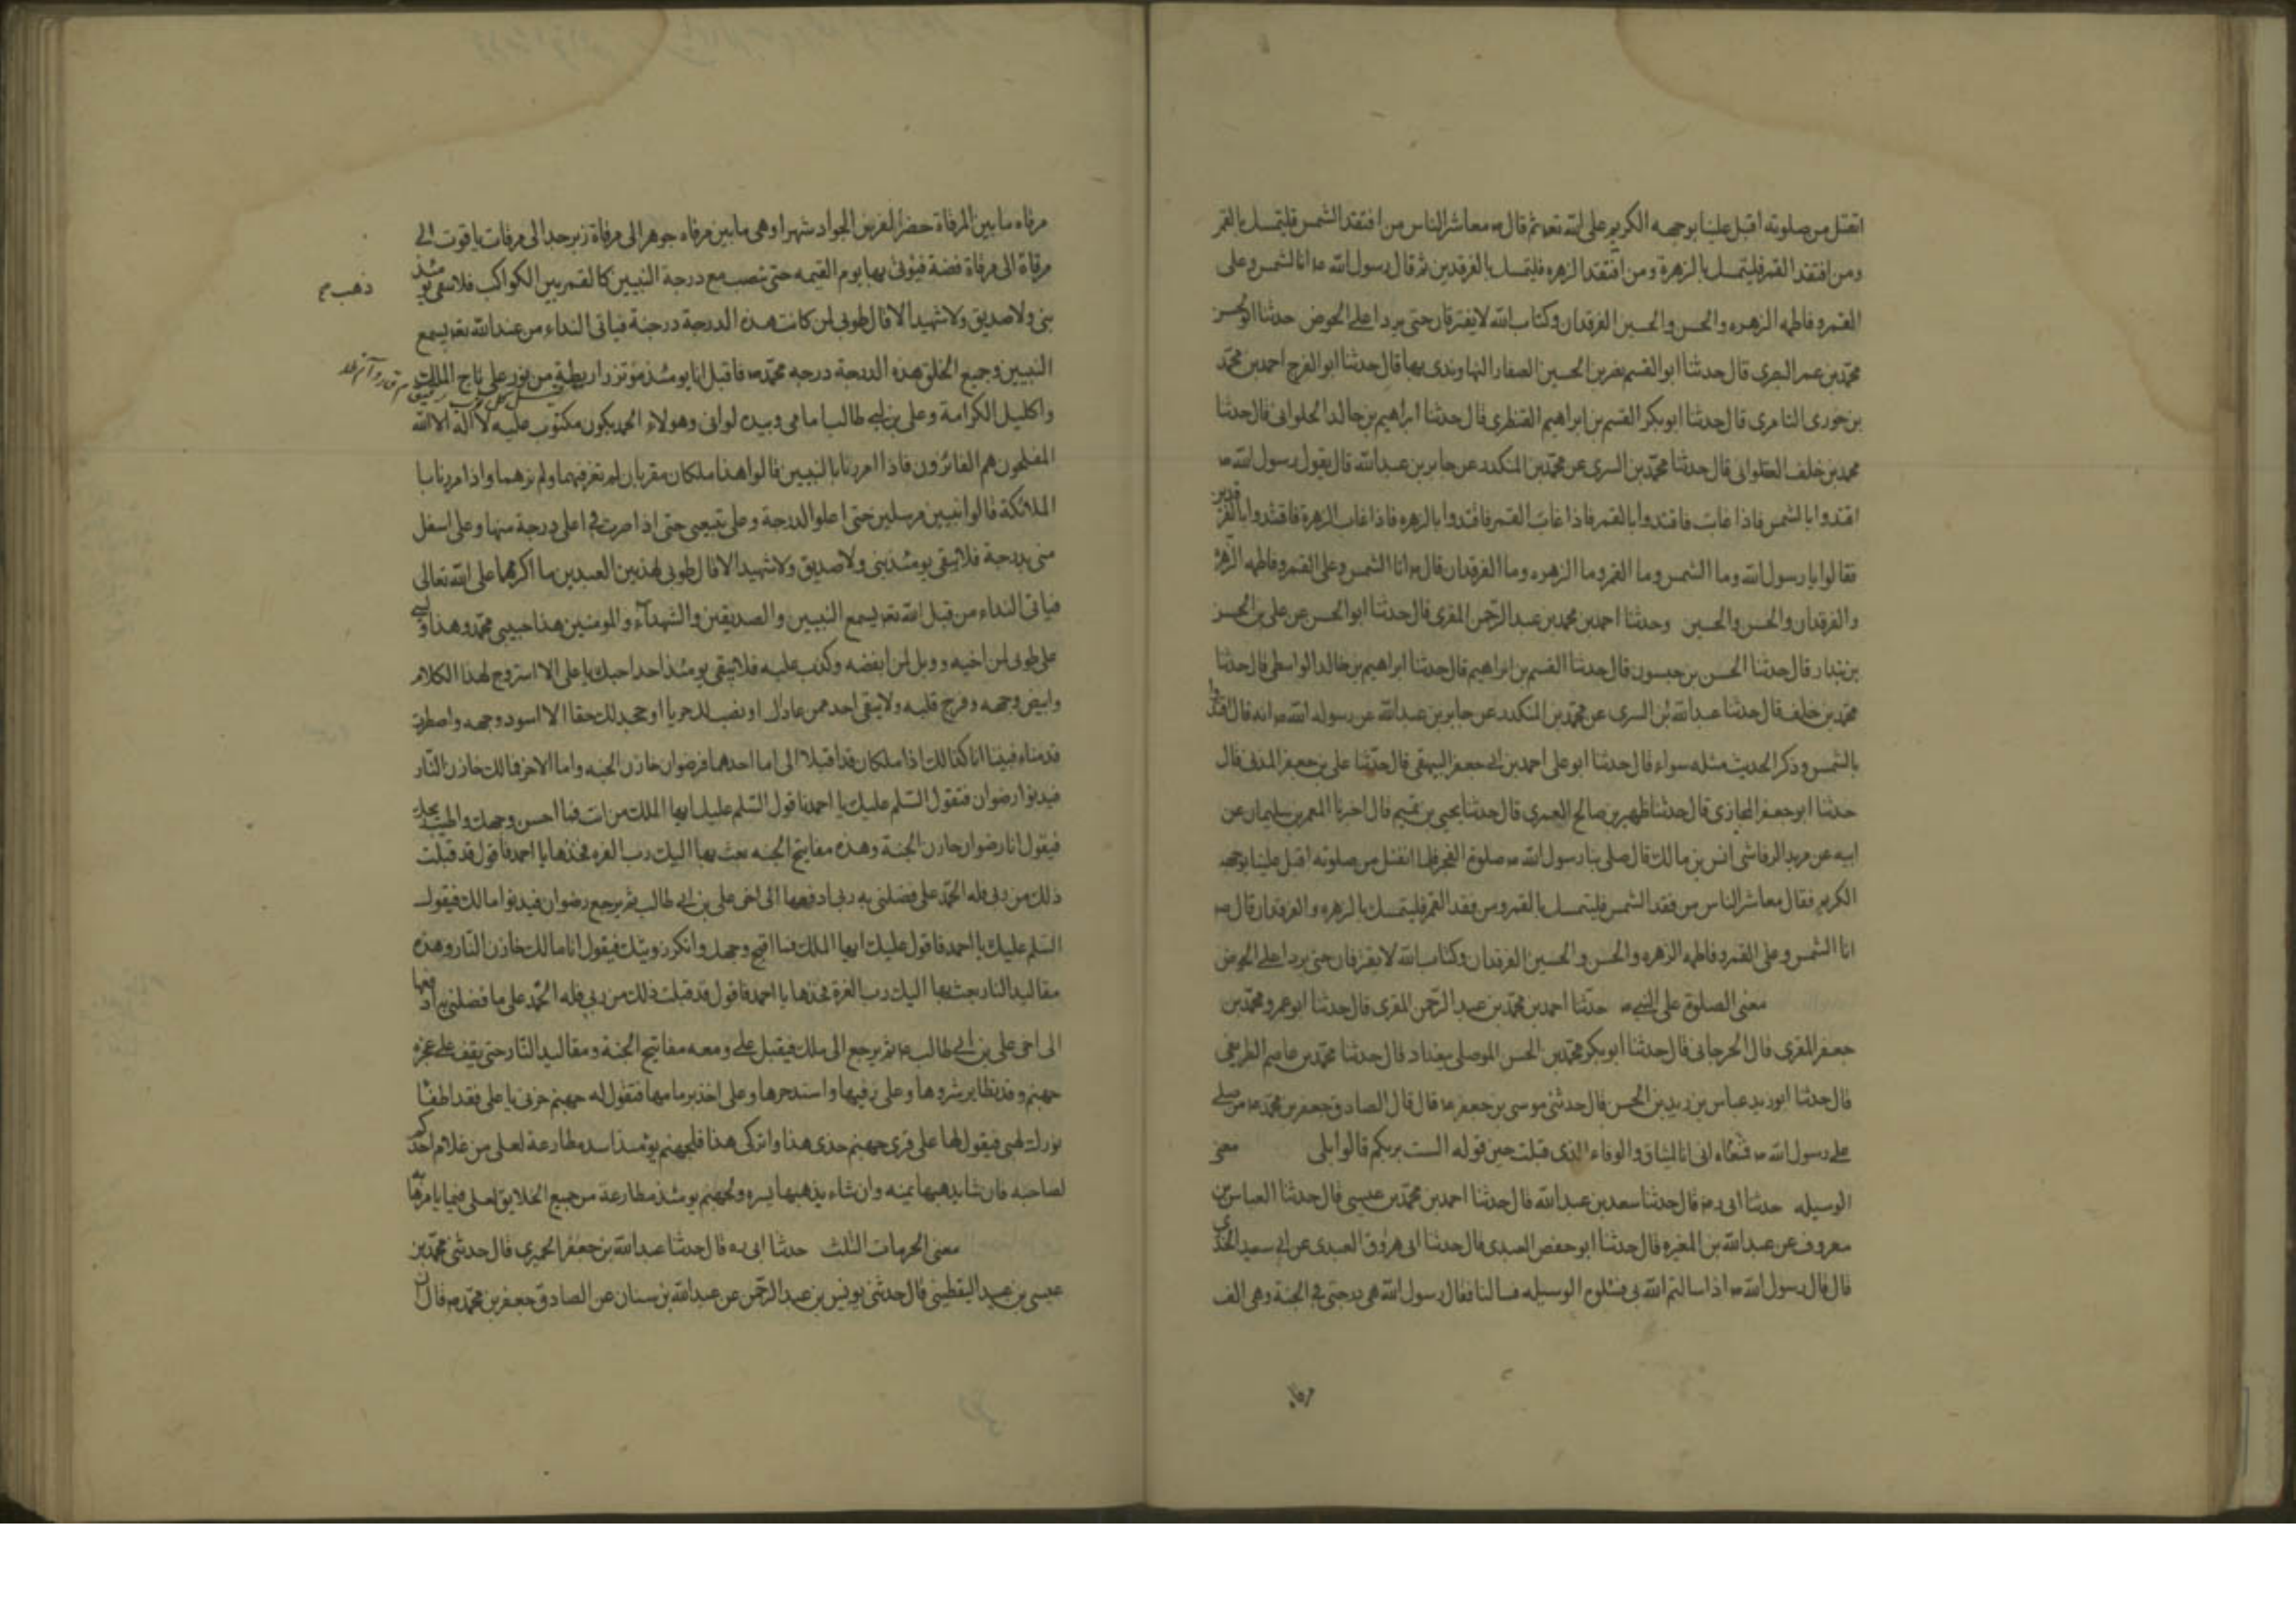 انفتل من صلوته اقبل علينا بوجهه الكريم على الله تعه ثم قال معاشر الناس من افتقد الشمس فليتمسك بالقمر
ومن افتقد القمر فليتمسك بالزهرة ومن افتقد الزهره فليتمسك بالفرقدين ثم قال رسول الله ص انا الشمس وعلى
القمر وفاطمه الزهره والحسن والحسين الفرقدان وكتاب الله لا يفترقان حتى يردا على الحوض حدثنا ابو الحسن
محمد بن عمر البصرى قال حدثنا ابو القسم نصر بن الحسين الصفار النهاوندى بها قال حدثنا ابو الفرج احمد بن محمد
بن جورى السامرى قال حدثنا ابو بكر القسم بن ابراهيم القنطرى قال حدثنا ابراهيم بن خالد الحلوانى قال حدثنا
محمد بن خلف العقلوانى قال حدثنا محمد بن السرى عن محمد بن المنكدر عن جابر بن عبدالله قال يقول رسول الله ص
اقتدوا بالشمس فاذا غابت فاقتدوا بالقمر فاذا غاب القمر فاقتدوا بالزهره فاذا غاب الزهرة فاقتدوا بالفرقدين
فقالوا يا رسول الله وما الشمس وما القمر وما الزهره وما الفرقدان قال ص انا الشمس وعلى القمر وفاطمه الزهره
والفرقدان والحسن والحسين وحدثنا احمد بن محمد بن عبد الرحمن المقرى قال حدثنا ابو الحسن عن على بن الحسن
بن بندار قال حدثنا الحسن بن حبسون قال حدثنا القسم بن ابراهيم قال حدثنا ابراهيم بن خالد الواسطى قال حدثنا
محمد بن خلف قال حدثنا عبدالله بن السرى عن محمد بن المنكدر عن جابر بن عبدالله عن رسول الله ص انه قال اقتدوا
بالشمس وذكر الحديث مثله سواء قال حدثنا ابو على احمد بن ابى جعفر البيهقى قال حدثنا على بن جعفر المدنى قال
حدثنا ابو جعفر المحازى قال حدثنا ظهير بن صالح العمرى قال حدثنا يحيى بن تميم قال اخبرنا المعمر بن سليمان عن
ابيه عن مريد الرقاشى انس بن مالك قال صلى بنا رسول الله ص صلوة الفجر فلما انفتل من صلوته اقبل علينا بوجهه
الكريم فقال معاشر الناس من فقد الشمس فليتمسك بالقمر ومن فقد القمر فليتمسك بالزهره والفرقدان قال ص
انا الشمس وعلى القمر وفاطمه الزهره والحسن والحسين الفرقدان وكتاب الله لا يفترقان حتى يردا على الحوض
معنى الصلوة على النبى ص حدثنا احمد بن محمد بن عبد الرحمن المقرى قال حدثنا ابو عمرو محمد بن
جعفر المقرى قال الجرجانى قال حدثنا ابو بكر محمد بن الحسن الموصلى ببغداد قال حدثنا محمد بن عاصم الطريفى
قال حدثنا ابو زيد عباس بن زيد بن الحسن قال حدثنى موسى بن جعفر ع قال قال الصادق جعفر بن محمد ع من صلى
على رسول الله ص فمعناه انى انا الميثاق والوفاء الذى قبلت حين قوله الست بربكم قالوا بلى معنى
الوسيله حدثنا ابى ره قال حدثنا سعد بن عبدالله قال حدثنا احمد بن محمد بن عيسى قال حدثنا العباس بن
معروف عن عبدالله بن المغيره قال حدثنا ابو حفص العبدى قال حدثنا ابى هروق العبدى عن ابى سعيد الخدرى
قال قال رسول الله ص اذا سالتم الله لى فسئلوه الوسيله فسالنا فقال رسول الله هى درجتى فى الجنة وهى الف
مرقاه
مرقاه ما بين المرقاة حضر الفرس الجواد شهرا وهى ما بين مرقاه جوهر الى مرقاة زبرجد الى مرقات ياقوت الى
ذهب
مرقاة الى مرقاة فضة فيؤتى بها يوم القيمه حتى تنصب مع درجة النبيين كالقمر بين الكواكب فلا يبقى يومئذ
نبى ولا صديق ولا شهيد الا قال طوبى لمن كانت هذه الدرجة درجته فياتى النداء من عند الله تعه يسمع
النبيين وجميع الخلق هذه الدرجة درجه محمد ص فاقبل انا يومئذ مؤتزرا بريطة من نور على تاج الملك
واكليل الكرامة وعلى بن ابى طالب امامى وبيده لوائى وهو لواء الحمد يكون مكتوب عليه لا اله الا الله
المفلحون هم الفائزون فاذا امررنا بالنبيين قالوا هذا ملكان مقربان لم نعرفهما ولم نرهما واذا مررنا با
الملائكة قالوا نبيين مرسلين حتى اعلو الدرجة وعلى يتبعنى حتى اذا صرت فى اعلى درجة منها وعلى اسفل
منى بدرجة فلا يبقى يومئذ نبى ولا صديق ولا شهيد الا قال طوبى لهذين العبدين ما اكرمهما على الله تعالى
فياتى النداء من قبل الله تعه يسمع النبيين والصديقين والشهداء والمومنين هذا حبيبى محمد وهذا ولى
على طوبى لمن احبه وويل لمن ابغضه وكذب عليه فلا يبقى يومئذ احد احبك يا على الا استروح لهذا الكلام
وابيض وجهه وفرح قلبه ولا يبقى احد ممن عاداك او نصب لك حربا او جحد لك حقا الا اسود وجهه واضطربت
قدماه فبينا انا كذلك اذا ملكان قد اقبلا الى اما احدهما فرضوان خازن الجنه واما الاخر فمالك خازن النار
فيدنوا رضوان فتقول السلم عليك يا احمد فاقول السلم عليك ايها الملك من انت فما احسن وجهك واطيب ريحك
فيقول انا رضوان خازن الجنة وهذه مفاتيح الجنه بعث بها اليك رب العزه فخذها يا احمد فاقول قد قبلت
ذلك من ربى فله الحمد على فضلنى به ربى ادفعها الى اخى على بن ابى طالب ثم يرجع رضوان فيدنوا مالك فيقول
السلم عليك يا احمد فاقول عليك ايها الملك فما اقبح وجهك وانكر رويتك فيقول انا مالك خازن النار وهذه
مقاليد النار بعث بها اليك رب العزة فخذها يا احمد فاقول قد قبلت ذلك من ربى فله الحمد على ما فضلنى به ادفعها
الى اخى على بن ابى طالب ع ثم يرجع الى ملك فيقبل على ومعه مفاتيح الجنة ومقاليد النار حتى يقف على عجزه
جهنم وقد تطاير شررها وعلى زفيرها واشتد حرها وعلى اخذ بزمامها فتقول له جهنم جزنى يا على فقد اطفئا
نورك لهبى فيقول لها على قرى جهنم خذى هذا واتركى هذا فلجهنم يومئذ اشد مطاوعة لعلى من غلام احدكم
لصاحبه فان شاء يذهبها يمينه وان شاء يذهبها يسره ولجهنم يومئذ مطاوعة من جميع الخلايق لعلى فيما يامرها
معنى الحرمات الثلث حدثنا ابى ره قال حدثنا عبدالله بن جعفر الحميرى قال حدثنى محمد بن
عيسى بن عبيد اليقطينى قال حدثنى يونس بن عبد الرحمن عن عبدالله بن سنان عن الصادق جعفر بن محمد ص قال ان